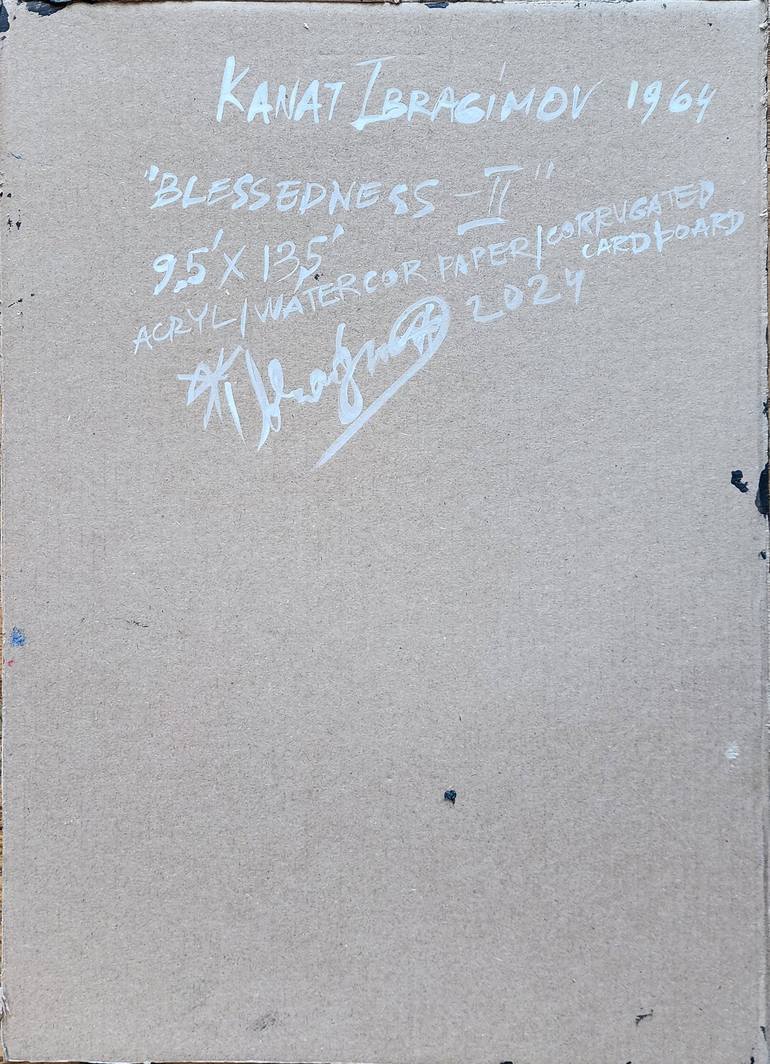 KANAT IBRAGIMOV 1964
"BLESSEDNESS - II"
9,5' X 13,5'
ACRYL/WATERCOR PAPER/CORRUGATED
CARDBOARD
2024